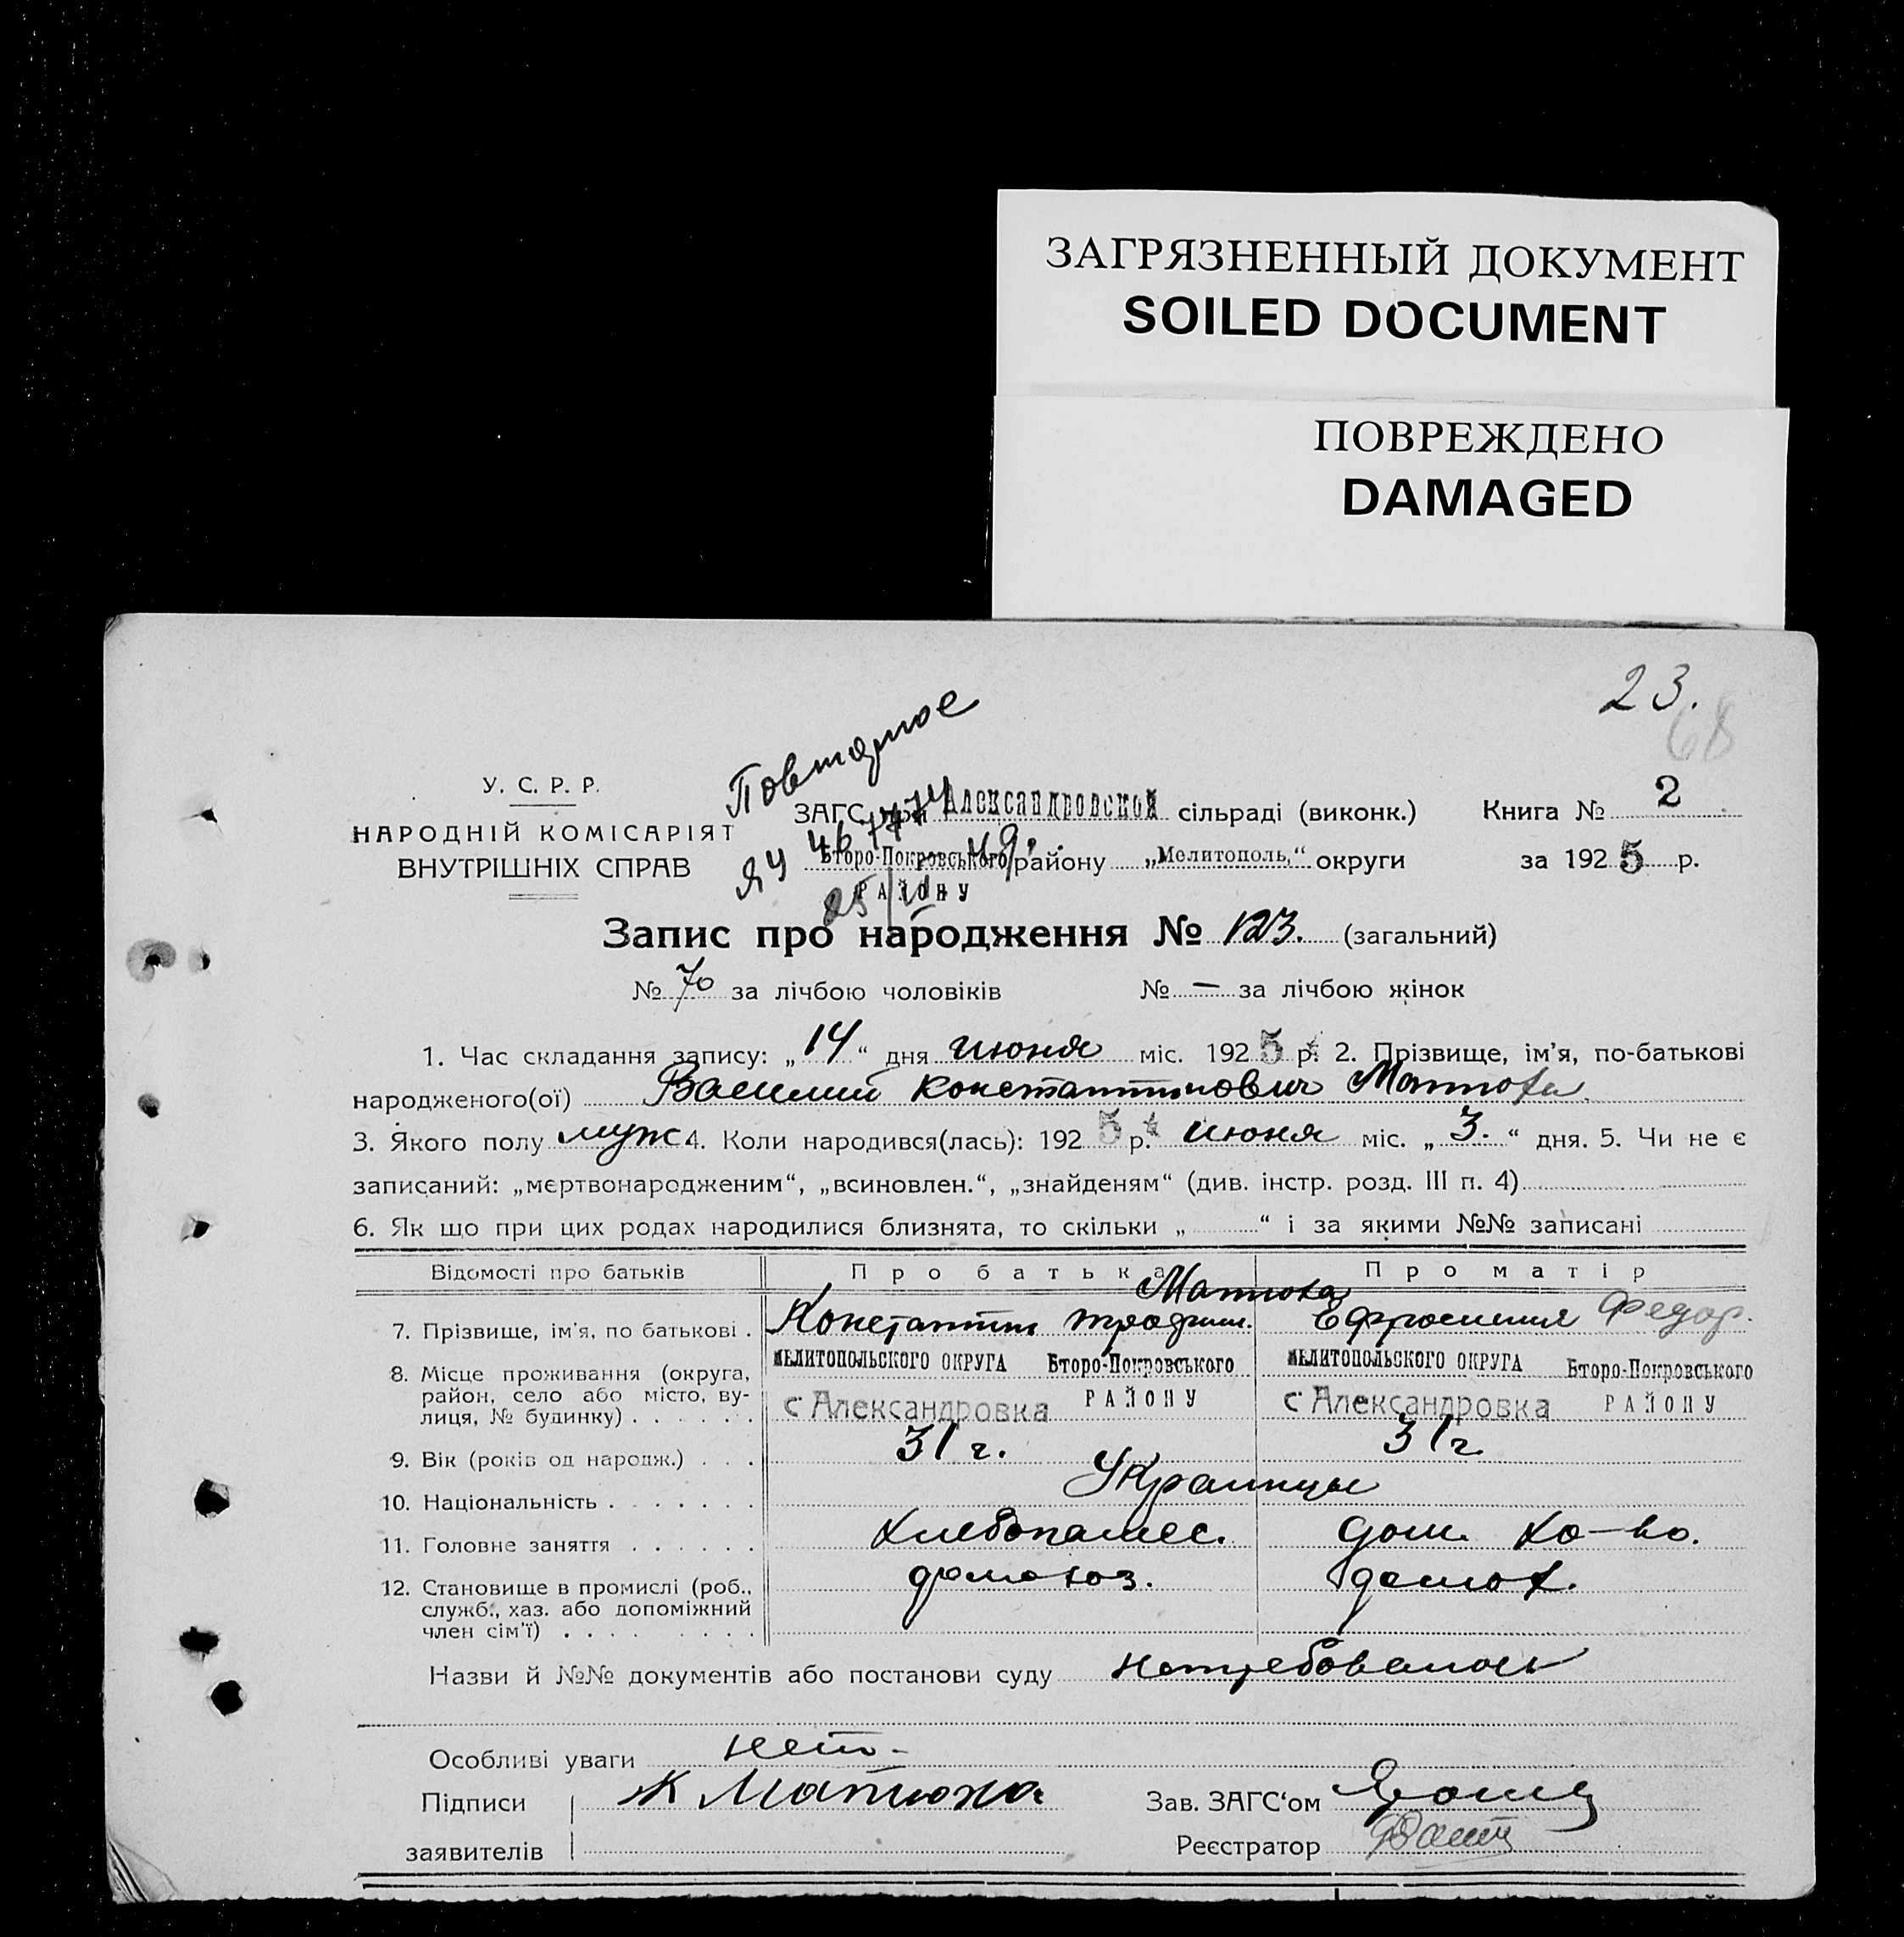 ЗАГРЯЗНЕННЫЙ ДОКУМЕНТ
SOILED DOCUMENT
ПОВРЕЖДЕНО
DAMAGED
23.
68
Повторное
У. С. Р. Р.
НАРОДНІЙ КОМІСАРІЯТ
ВНУТРІШНІХ СПРАВ
ЗАГС при Александровской сільраді (виконк.) Книга № 2
Второ-Покровського району „Мелитополь," округи за 1925 р.
РАЙОНУ
Запис про народження № 123. (загальний)
№ 70 за лічбою чоловіків № — за лічбою жінок
1. Час складання запису: „14" дня июня міс. 1925 р. 2. Прізвище, ім'я, по-батькові
народженого(ої) Василий Константинович Матюха
3. Якого полу муж 4. Коли народився(лась): 1925 р. июня міс. „3." дня. 5. Чи не є
записаний: „мертвонародженим", „всиновлен.", „знайденям" (див. інстр. розд. III п. 4)
6. Як що при цих родах народилися близнята, то скільки „ " і за якими №№ записані
Відомості про батьків Про батька Про матір
Матюха
7. Прізвище, ім'я, по батькові . Константин Ефросиния Федор.
8. Місце проживання (округа, МЕЛИТОПОЛЬСКОГО ОКРУГА Второ-Покровського МЕЛИТОПОЛЬСКОГО ОКРУГА Второ-Покровського
район, село або місто, ву- с Александровка РАЙОНУ с Александровка РАЙОНУ
лиця, № будинку)
9. Вік (років од народж.) . . . 31 г. 31 г.
10. Національність Украинцы
11. Головне заняття Хлебопашес. дом. хо-во.
12. Становище в промислі (роб., домохоз. домох.
служб., хаз. або допоміжний
член сім'ї)
Назви й №№ документів або постанови суду нетребовалось
Особливі уваги нет.
Підписи К Матюха Зав. ЗАГС'ом
заявителів Реєстратор